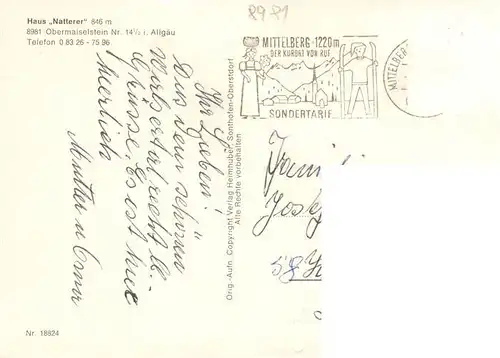 8981
Haus „Natterer" 846 m
8981 Obermaiselstein Nr. 14½ i. Allgäu
Telefon 0 83 26 - 75 96
MITTELBERG · 1220 m
DER KURORT VON RUF
SONDERTARIF
MITTELBER
Ihr Lieben!
Aus dem schönen
recht lb.
Grüsse, Es ist hier
herrlich
Mutter u.
Orig.-Aufn. Copyright Verlag Heimhuber, Sonthofen-Oberstdorf
Alte Rechte vorbehalten
Fami
Nr. 18824